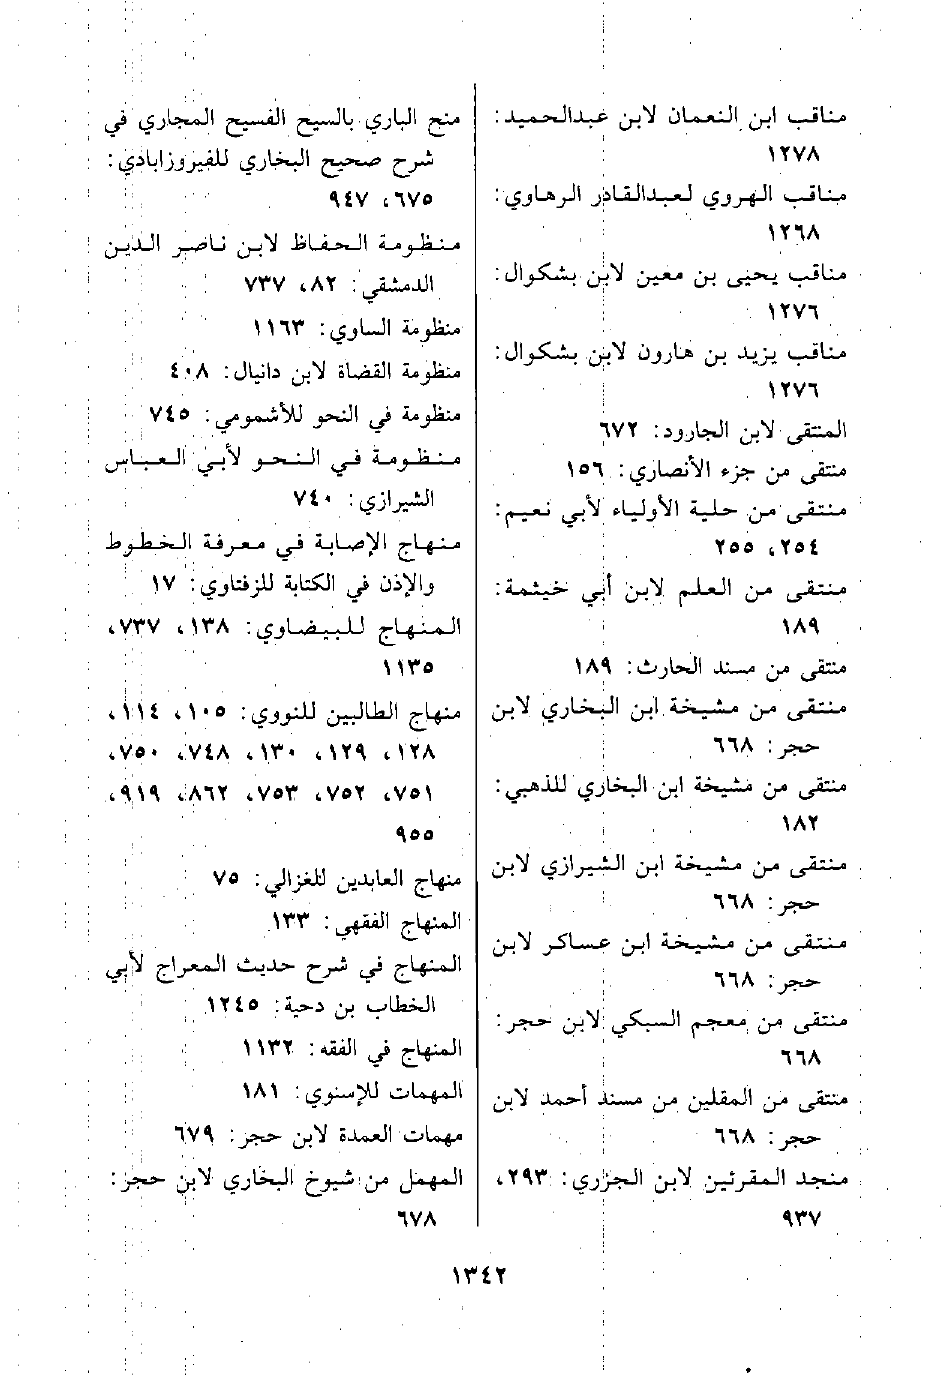 مناقب ابن النعمان لابن عبدالحميد:
١٢٧٨
مناقب الهروي لعبدالقادر الرهاوي:
١٢٦٨
مناقب يحيى بن معين لابن بشكوال:
١٢٧٦
مناقب يزيد بن هارون لابن بشكوال:
١٢٧٦
المنتقى لابن الجارود: ٦٧٢
منتقى من جزء الأنصاري: ١٥٦
منتقى من حلية الأولياء لأبي نعيم:
٢٥٤، ٢٥٥
منتقى من العلم لابن أبي خيثمة:
١٨٩
منتقى من مسند الحارث: ١٨٩
منتقى من مشيخة ابن البخاري لابن
حجر: ٦٦٨
منتقى من مشيخة ابن البخاري للذهبي:
١٨٢
منتقى من مشيخة ابن الشيرازي لابن
حجر: ٦٦٨
منتقى من مشيخة ابن عساكر لابن
حجر: ٦٦٨
منتقى من معجم السبكي لابن حجر:
٦٦٨
منتقى من المقلين من مسند أحمد لابن
حجر: ٦٦٨
منجد المقرئين لابن الجزري: ٢٩٣،
٩٣٧
منح الباري بالسيح الفسيح المجاري في
شرح صحيح البخاري للفيروزابادي:
٦٧٥، ٩٤٧
منظومة الحفاظ لابن ناصر الدين
الدمشقي: ٨٢، ٧٣٧
منظومة الساوي: ١١٦٣
منظومة القضاة لابن دانيال: ٤٠٨
منظومة في النحو للأشمومي: ٧٤٥
منظومة في النحو لأبي العباس
الشيرازي: ٧٤٠
منهاج الإصابة في معرفة الخطوط
والإذن في الكتابة للزفتاوي: ١٧
المنهاج للبيضاوي: ١٣٨، ٧٣٧،
١١٣٥
منهاج الطالبين للنووي: ١٠٥، ١١٤،
١٢٨، ١٢٩، ١٣٠، ٧٤٨، ٧٥٠،
٧٥١، ٧٥٢، ٧٥٣، ٨٦٢، ٩١٩،
٩٥٥
منهاج العابدين للغزالي: ٧٥
المنهاج الفقهي: ١٣٣
المنهاج في شرح حديث المعراج لأبي
الخطاب بن دحية: ١٢٤٥
المنهاج في الفقه: ١١٣٢
المهمات للإسنوي: ١٨١
مهمات العمدة لابن حجر: ٦٧٩
المهمل من شيوخ البخاري لابن حجر:
٦٧٨
١٣٤٢